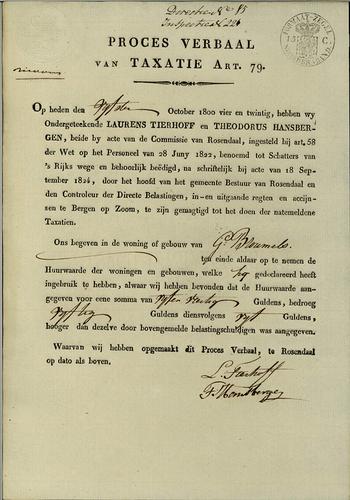 PROCES VERBAAL
VAN TAXATIE ART. 79.
Op heden den October 1800 vier en twintig, hebben wy
Ondergeteekende LAURENS TIERHOFF en THEODORUS HANSBER-
GEN, beide by acte van de Commissie van Rosendaal, ingesteld bij art. 58
der Wet op het Personeel van 28 Juny 1822, benoemd tot Schatters van
's Rijks wege en behoorlijk beëdigd, na schriftelijk bij acte van 18
September 1824, door het hoofd van het gemeente Bestuur van Rosendaal en
den Controleur der Directe Belastingen, in- en uitgaande regten en accijn-
sen te Bergen op Zoom, te zijn gemagtigd tot het doen der natemeldene
Taxatien.
Ons begeven in de woning of gebouw van G. Bloumels
ten einde aldaar op te nemen de
Huurwaarde der woningen en gebouwen, welke hy gedeclareerd heeft
ingebruik te hebben, alwaar wij hebben bevonden dat de Huurwaarde aan-
gegeven voor eene somma van Guldens, bedroeg
vyftig Guldens diensvolgens Guldens,
hooger dan dezelve door bovengemelde belastingschuldigen was aangegeven.
Waarvan wij hebben opgemaakt dit Proces Verbaal, te Rosendaal
op dato als boven.